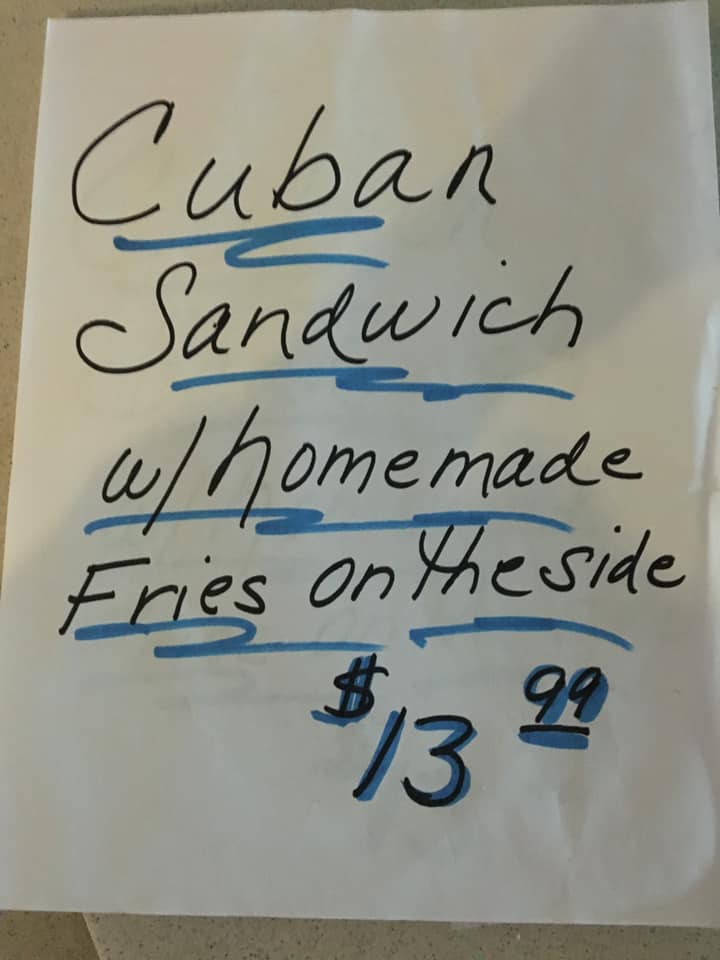 Cuban
Sandwich
w/homemade
Fries on the side
$13 99